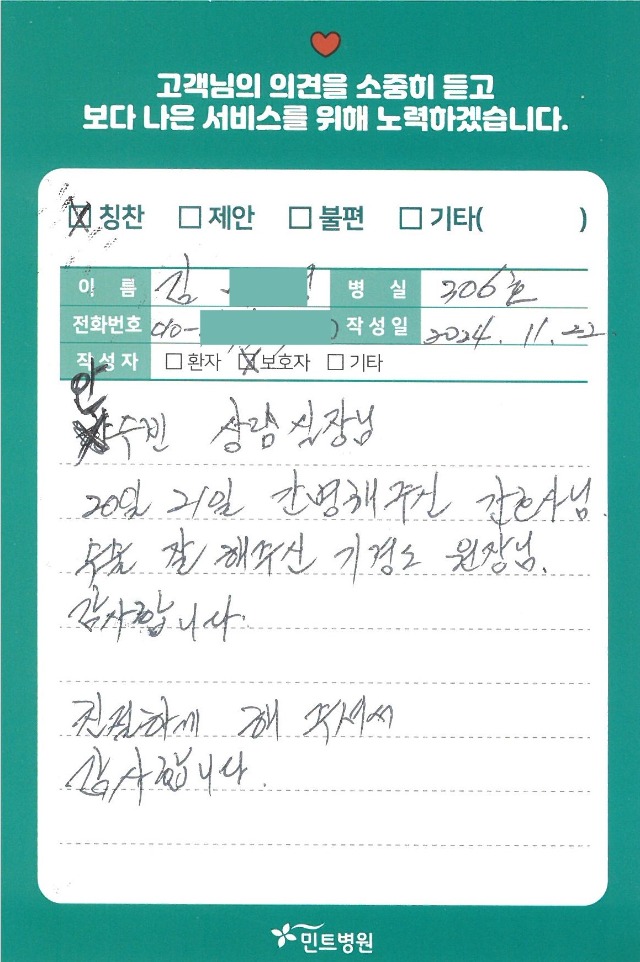 고객님의 의견을 소중히 듣고
보다 나은 서비스를 위해 노력하겠습니다.
칭찬 제안 불편 기타( )
이 름 김 병 실 306호
전화번호 010- 작성일 2024. 11. 22
작성자 환자 보호자 기타
안
수빈 상담실장님
20일 21일 간병해주신 간호사님.
수술 잘 해주신 기경도 원장님.
감사합니다.
친절하게 해 주셔서
감사합니다.
민트병원